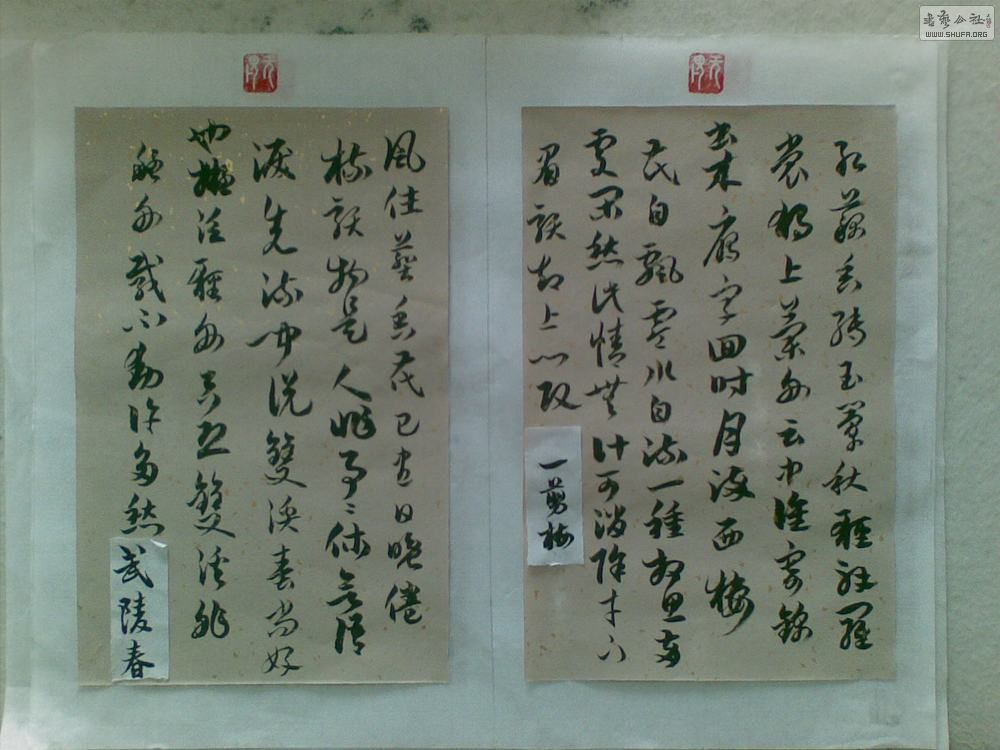 红藕香殘玉簟秋輕解羅
裳獨上蘭舟云中誰寄錦
書來雁字回時月滿西樓
花自飄零水自流一種相思兩
處閑愁此情無計可消除才下
眉頭却上心頭
一剪梅
風住塵香花已盡日晚倦
梳頭物是人非事〻休欲語
淚先流聞說雙溪春尚好
也擬泛輕舟只恐雙溪舴
艋舟載不動許多愁
武陵春
书艺公社
WWW.SHUFA.ORG